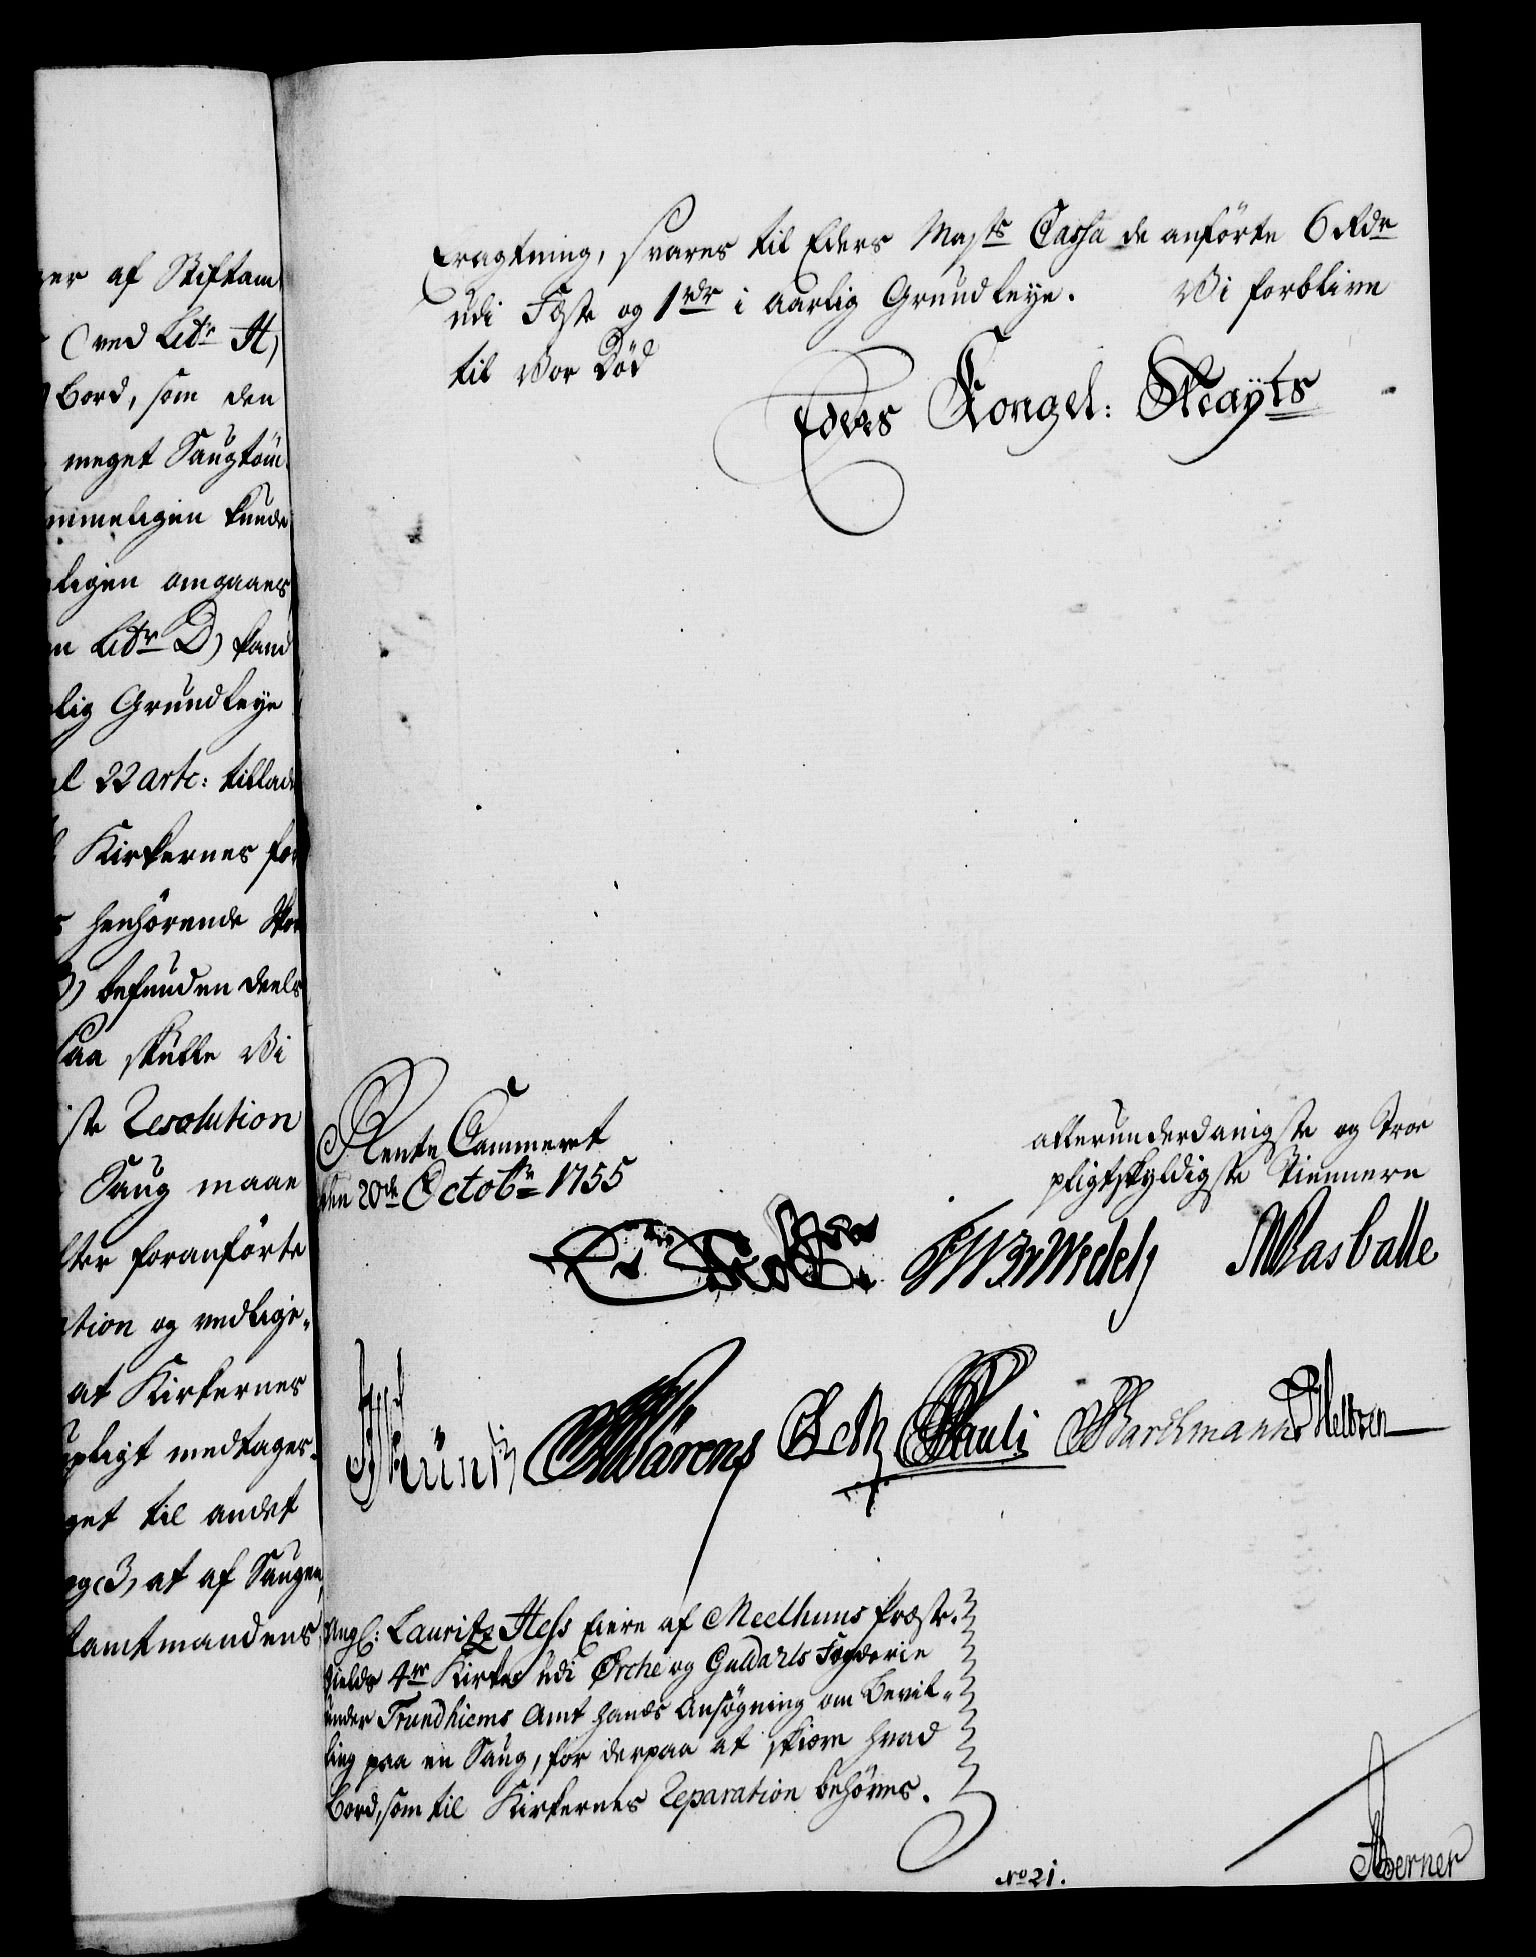 er af Stiftam
(ved Litr H)
Bord, som den
meget Saugtöm
mmeligen kunde
ligen omgaaes
n Litr D) kand
lig Grundleye
al 22 artc: tillad
Kirkernes for
s henhörende Sko
befunden deels
Saa skulle Vi
ste Resolution
Saug maae
lter foranförte
ation og vedlige-
at Kirkernes
upligt medtages
get til andet
og (3, at af Saugen
tamtmandens
tragtning, svares til Eders Maysts Cassa de anförte 6 Rdr
udi Fæste og 1 rdr i aarlig Grundleye. Vi forblive
til Vor Död
Eders Kongel: Mayts
Rente Cammeret
den 20de Octobr 1755
allerunderdanigste og troe
pligtskyldigste tiennere
Wedell Rasballe
Wärens Pauli Barchmann
Ang: Lauritz Hess Eiere af Meelhuus Præste-
gields 4re Kirker udi Orche og Guldahls Fogderie
under Trundhiems Amt hands Ansögning om Bevil-
ling paa en Saug, for derpaa at skiære hvad
Bord, som til Kirkernes Reparation behöves.
No 21.
Berner